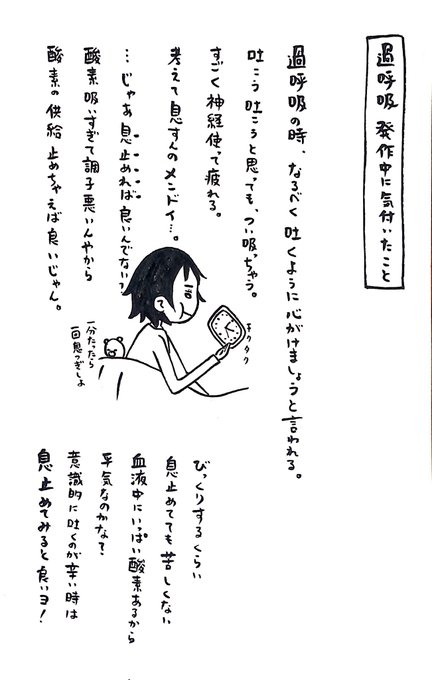 過呼吸 発作中に気付いたこと
過呼吸の時、なるべく吐くように心がけましょうと言われる。
吐こう吐こうと思っても、つい吸っちゃう。
すごく神経使って疲れる。
考えて息すんのメンドイ…。
…じゃあ息止めれば良いんでない?
酸素吸いすぎて調子悪いんやから
酸素の供給止めちゃえば良いじゃん。
チクタク
一分たったら
一回息つぎしよ
びっくりするくらい
息止めてても苦しくない
血液中にいっぱい酸素あるから
平気なのかな?
意識的に吐くのが辛い時は
息止めてみると良いヨ!